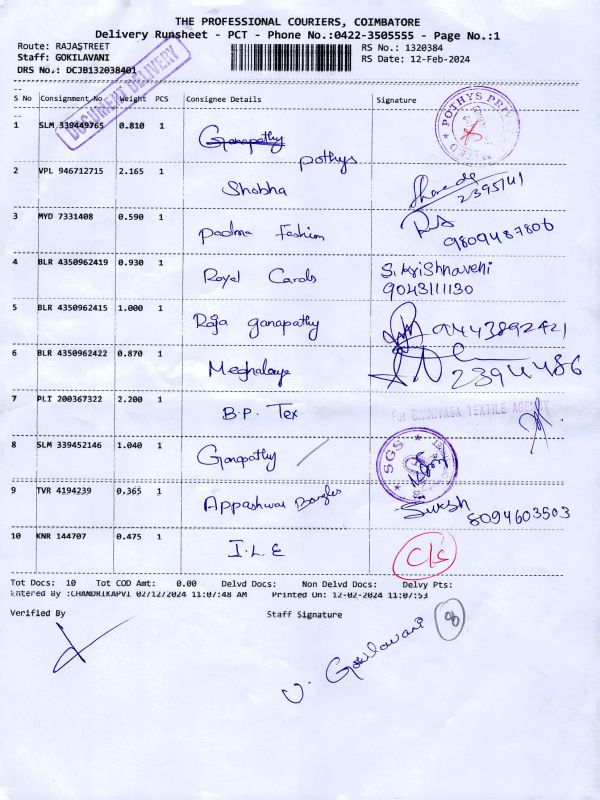 THE PROFESSIONAL COURIERS, COIMBATORE
Delivery Runsheet - PCT - Phone No.:0422-3505555 - Page No.:1
Route: RAJASTREET RS No.: 1320384
Staff: GOKILAVANI RS Date: 12-Feb-2024
DRS No.: DCJB132038401
DOCUMENT DELIVERY
S No Consignment No Weight PCS Consignee Details Signature
1 SLM 339449765 0.810 1 Ganapathy pothys
POTHYS
2 VPL 946712715 2.165 1 Shobha 2395141
3 MYD 7331408 0.590 1 padma Fashion 9809487806
4 BLR 4350962419 0.930 1 Royal Cards S. Krishnaveni
9043111130
5 BLR 4350962415 1.000 1 Raja ganapathy 9443892421
6 BLR 4350962422 0.870 1 Meghalaya 2394486
7 PLI 200367322 2.200 1 B.P. Tex For SRINIVASA TEXTILE AGENCY
8 SLM 339452146 1.040 1 Ganapathy SGS
9 TVR 4194239 0.365 1 Appashwar Bangles Suresh
8094603503
10 KNR 144707 0.475 1 I.L.E C/s
Tot Docs: 10 Tot COD Amt: 0.00 Delvd Docs: Non Delvd Docs: Delvy Pts:
Entered By :CHANDRIKAPVI 02/12/2024 11:07:48 AM Printed On: 12-02-2024 11:07:53
Verified By Staff Signature
V. Gokilavani